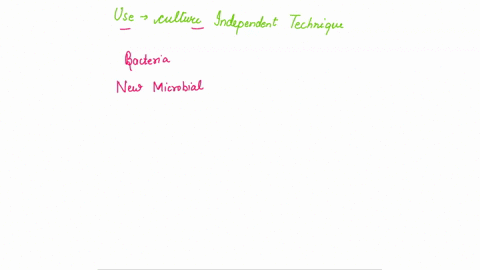 Use → culture Independent Technique
Bacteria
New Microbial